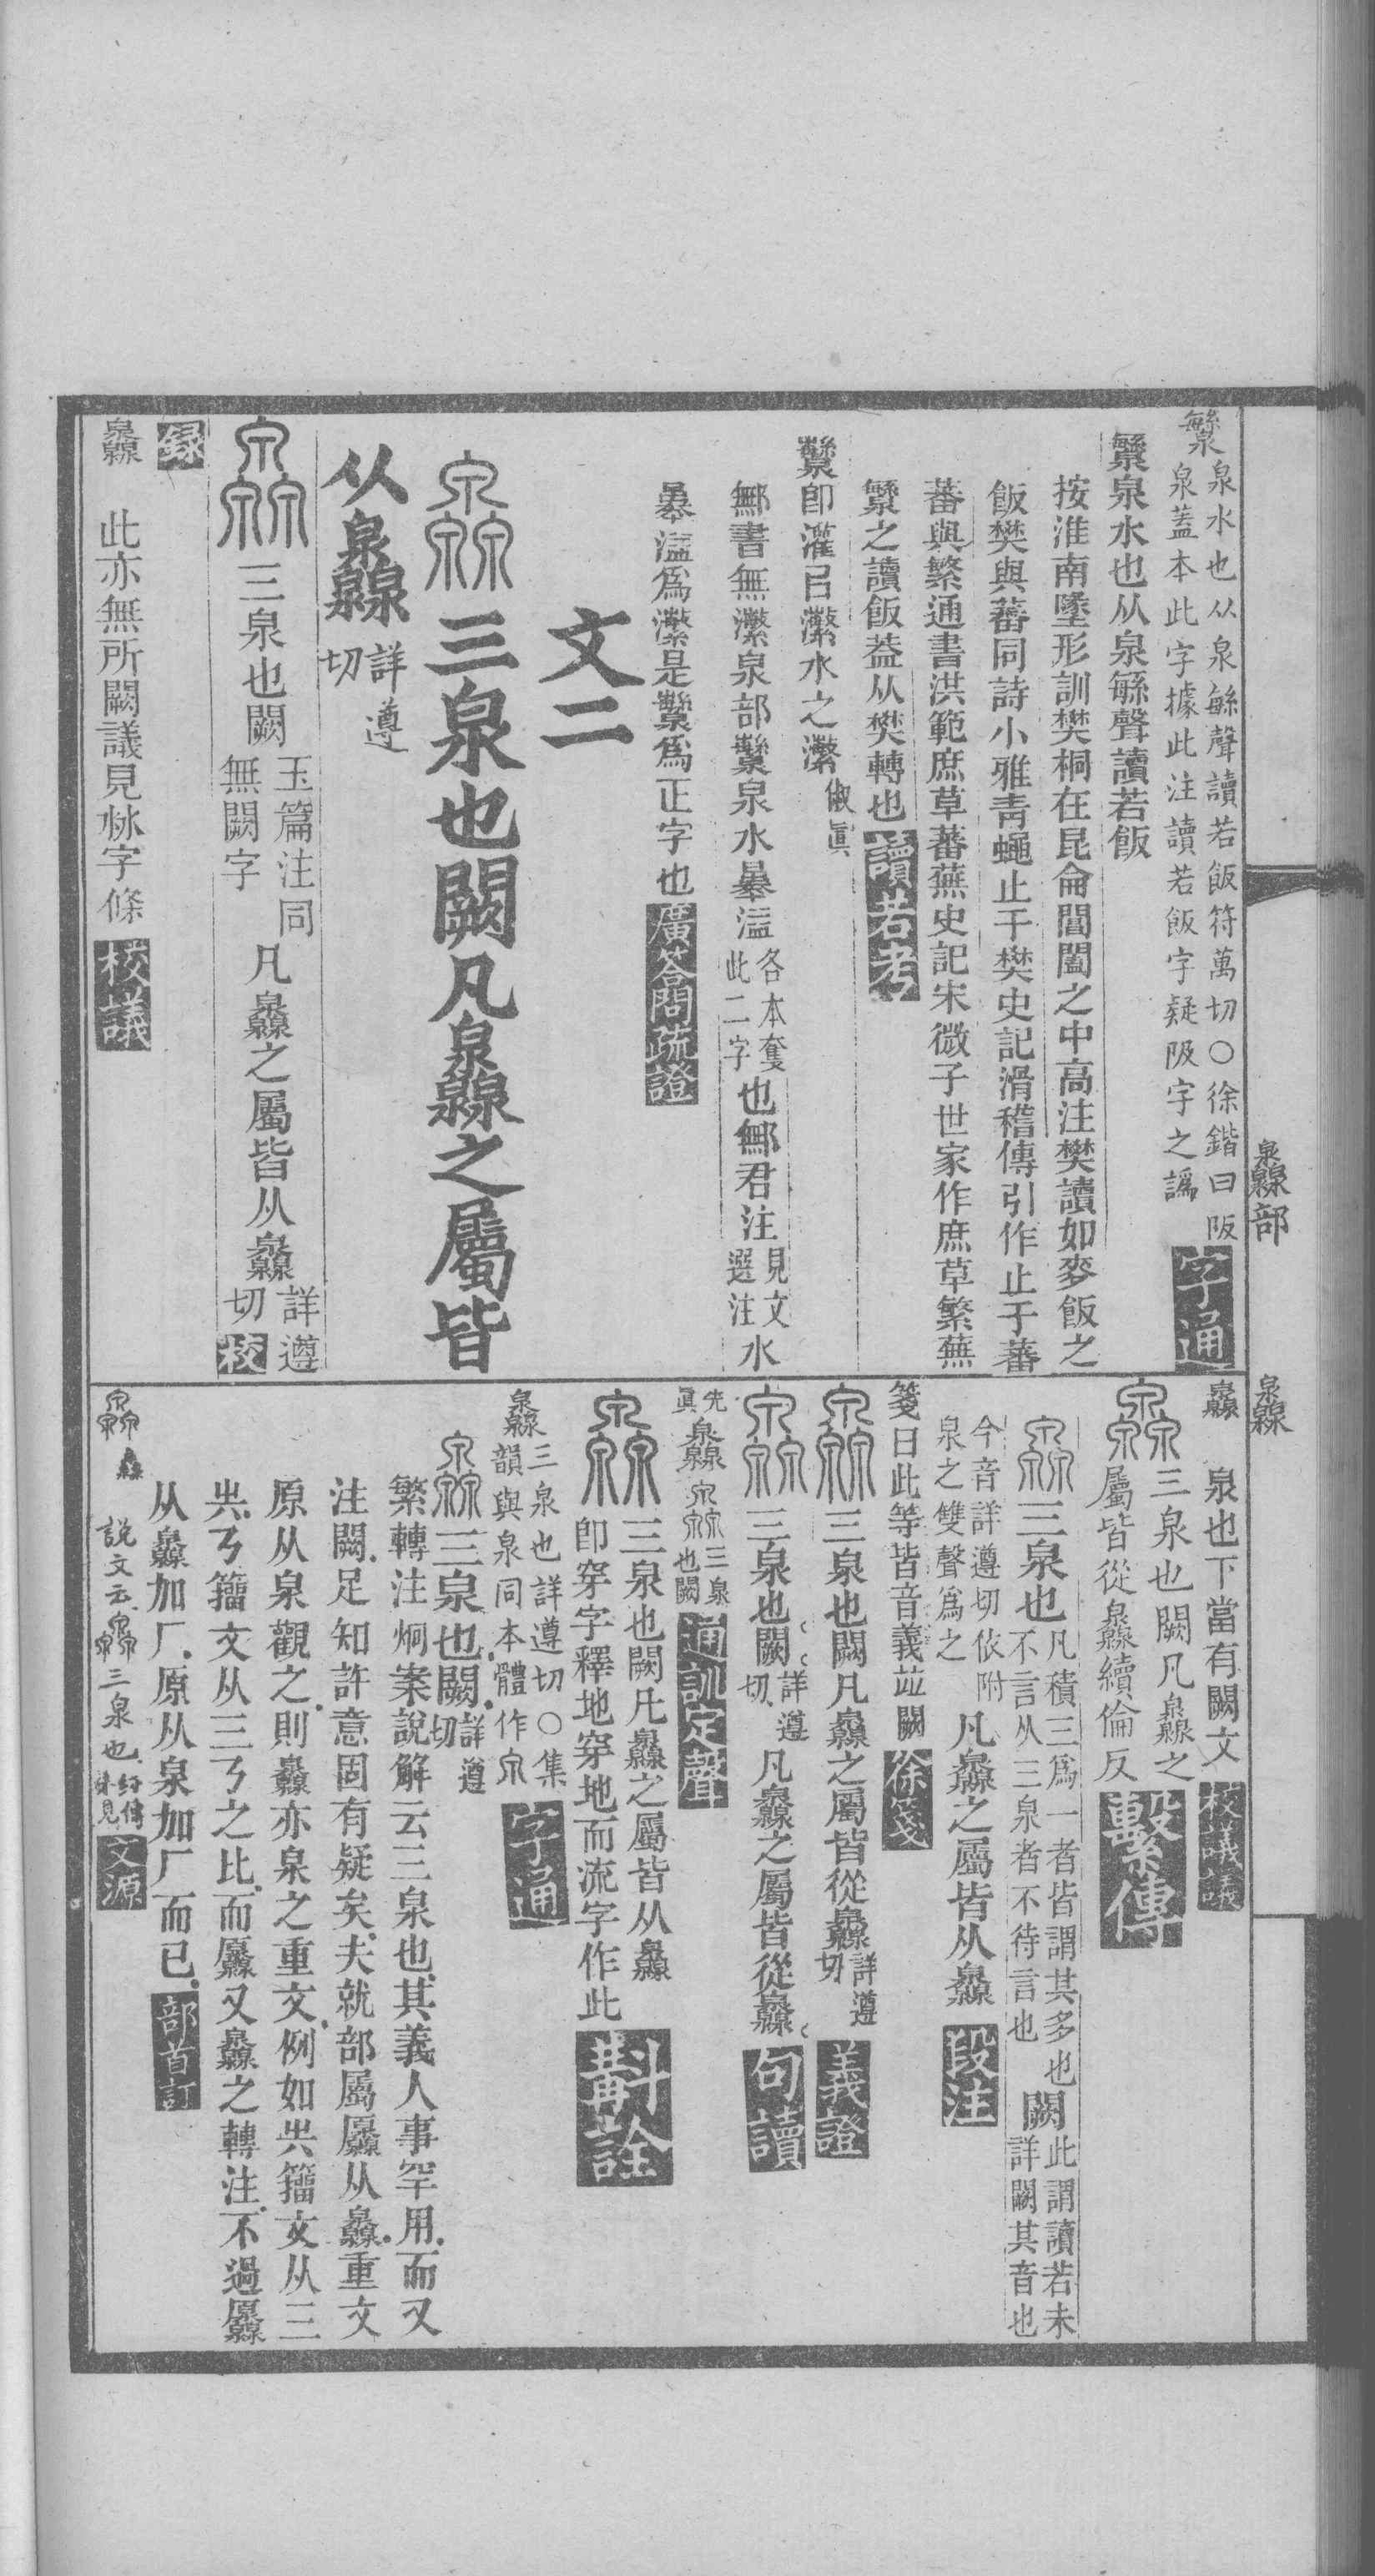 灥部
灥
䋣泉水也从泉緐聲讀若飯符萬切○徐鍇曰阪
泉蓋本此字據此注讀若飯字疑阪字之譌 字通
䋣泉水也从泉緐聲讀若飯
按淮南墬形訓樊桐在昆侖閶闔之中高注樊讀如麥飯之
飯樊與蕃同詩小雅靑蠅止于樊史記滑稽傳引作止于蕃
蕃與繁通書洪範庶草蕃蕪史記宋微子世家作庶草繁蕪
䋣之讀飯蓋从樊轉也 讀若考
䋣即灌㠯瀿水之瀿俶眞
鄦書無瀿泉部䋣泉水㬥溢各本奪此二字也鄦君注見文選注水
㬥溢爲瀿是䋣爲正字也 廣答問疏證
文二
灥三泉也闕凡灥之屬皆
从灥詳遵切
灥三泉也闕玉篇注同無闕字凡灥之屬皆从灥詳遵切 校
錄
灥 此亦無所闕議見沝字條 校議
灥 泉也下當有闕文 校議議
灥三泉也闕凡灥之
屬皆從灥續倫反 繫傳
灥三泉也凡積三爲一者皆謂其多也不言从三泉者不待言也闕此謂讀若未詳闕其音也
今音詳遵切依附泉之雙聲爲之凡灥之屬皆从灥 段注
箋曰此等皆音義竝闕 徐箋
灥三泉也闕凡灥之屬皆從灥詳遵切 義證
灥三泉也闕。詳遵切。凡灥之屬皆從灥。 句讀
先眞灥灥三泉也闕 通訓定聲
灥三泉也闕凡灥之屬皆从灥
即穿字釋地穿地而流字作此 斠詮
灥三泉也詳遵切○集
韻與泉同本體作 字通
灥三泉也闕詳遵切
繁轉注炯案說解云三泉也其義人事罕用而又
注闕足知許意固有疑矣夫就部屬厵从灥重文
原从泉觀之則灥亦泉之重文例如籀文从三
籀文从三之比而厵又灥之轉注不過厵
从灥加厂原从泉加厂而已 部首訂
灥 說文云灥三泉也 文源